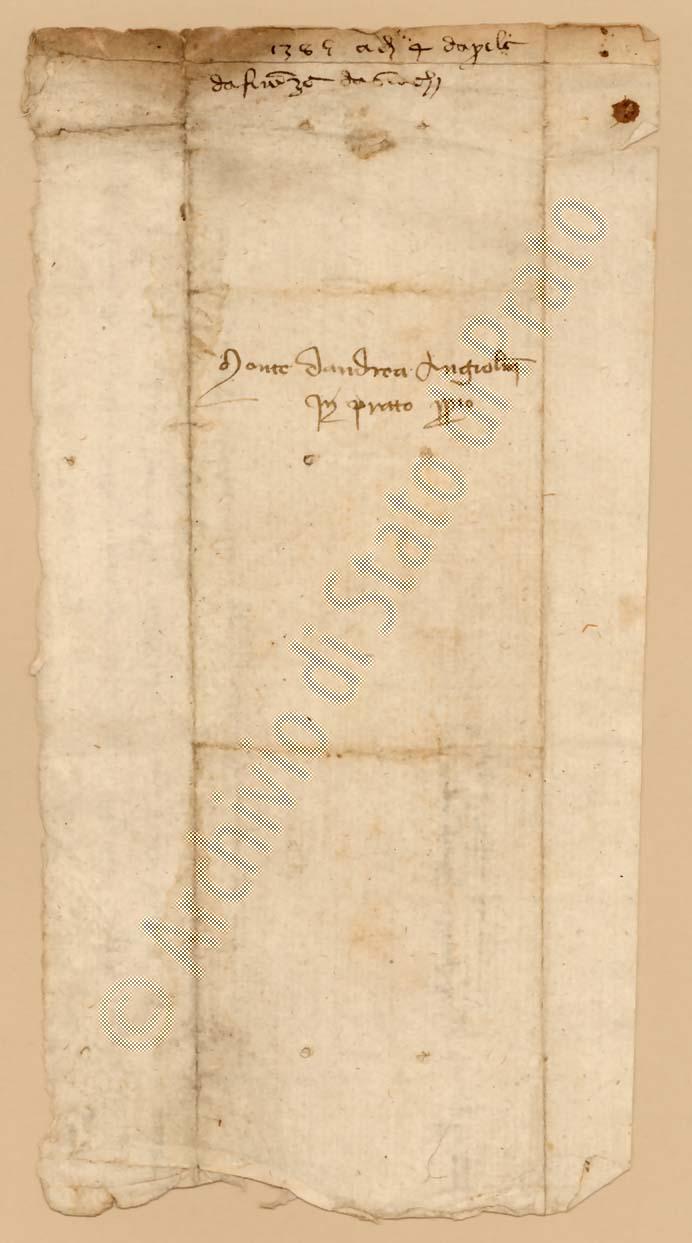 138 adì 4 daprile
da firenze da
Monte dandrea Angiolini
in prato propio
© Archivio di Stato di Prato